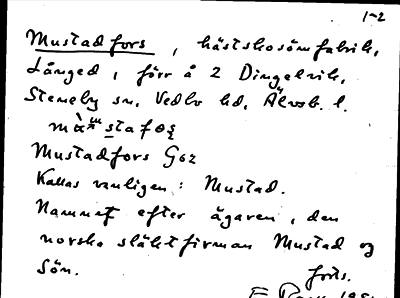 1-2
Mustadfors, hästskosömfabrik,
Långed, förr å 2 Dingelvik,
Steneby sn, Vedbo hd, Älvsb. l.
Mustadfors G62
Kallas vanligen: Mustad.
Namnet efter ägaren, den
norska släktfirman Mustad og
Sön.
forts.